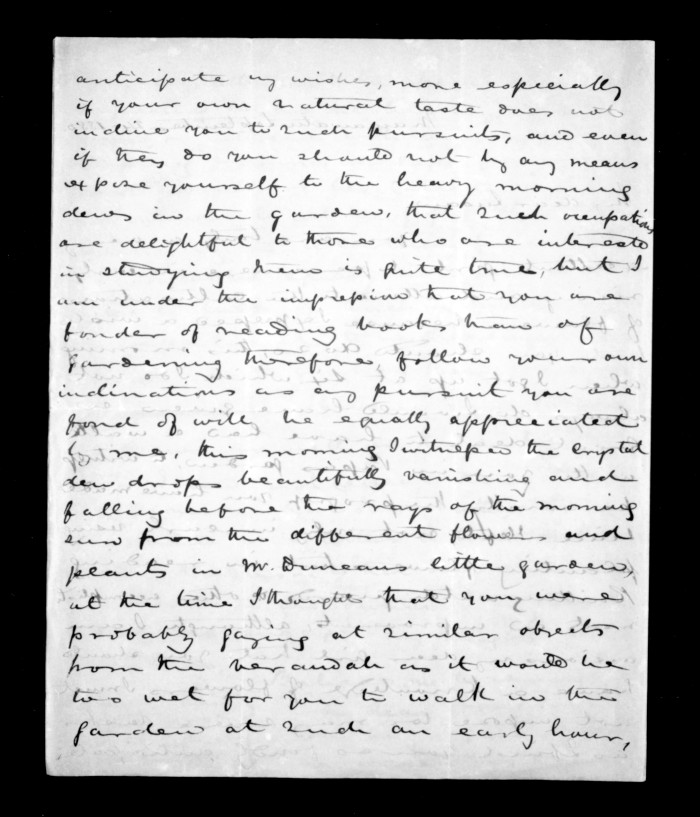 anticipate my wishes, more especially
if your own natural taste does not
incline you to such pursuits, and even
if they do you should not by any means
expose yourself to the heavy morning
dews in the garden, that such occupations
are delightful to those who are interested
in studying them is quite true, but I
am under the impression that you are
fonder of reading books than of
gardening therefore follow your own
inclinations as any pursuit you are
fond of will be equally appreciated
by me, this morning I witnessed the crystal
dew drops beautifully vanishing and
falling before the rays of the morning
sun from the different flowers and
plants in Mr. Duncans little garden,
at the time I thought that you were
probably gazing at similar objects
from the verandah as it would be
too wet for you to walk in the
garden at such an early hour,